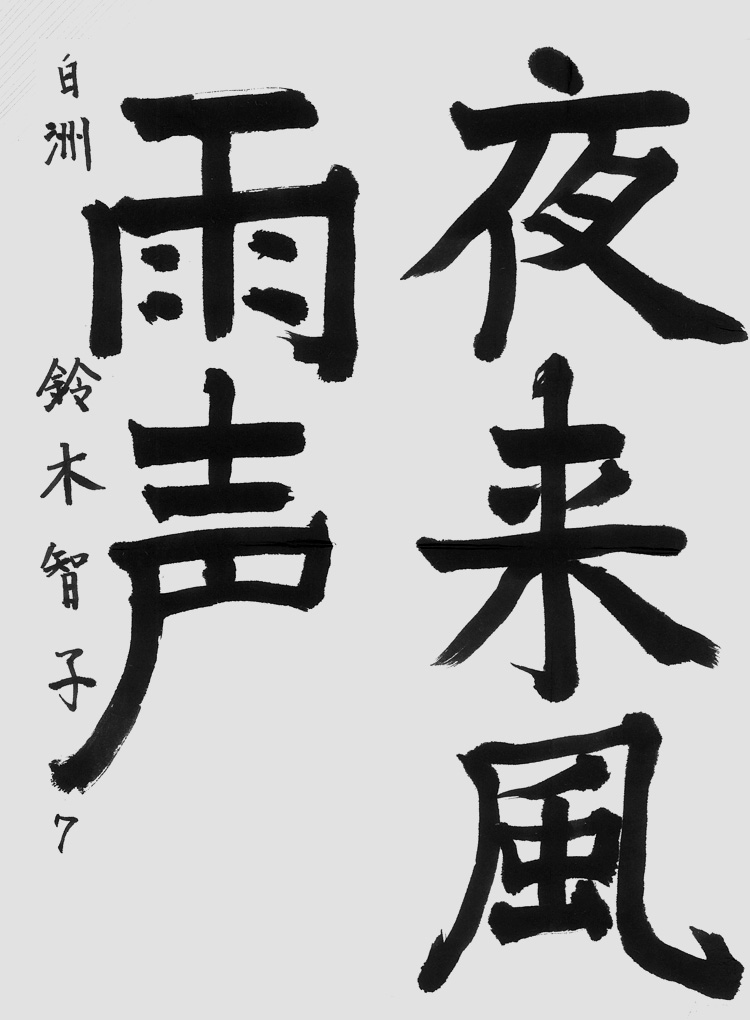 夜来風
雨声
白洲 鈴木智子 7